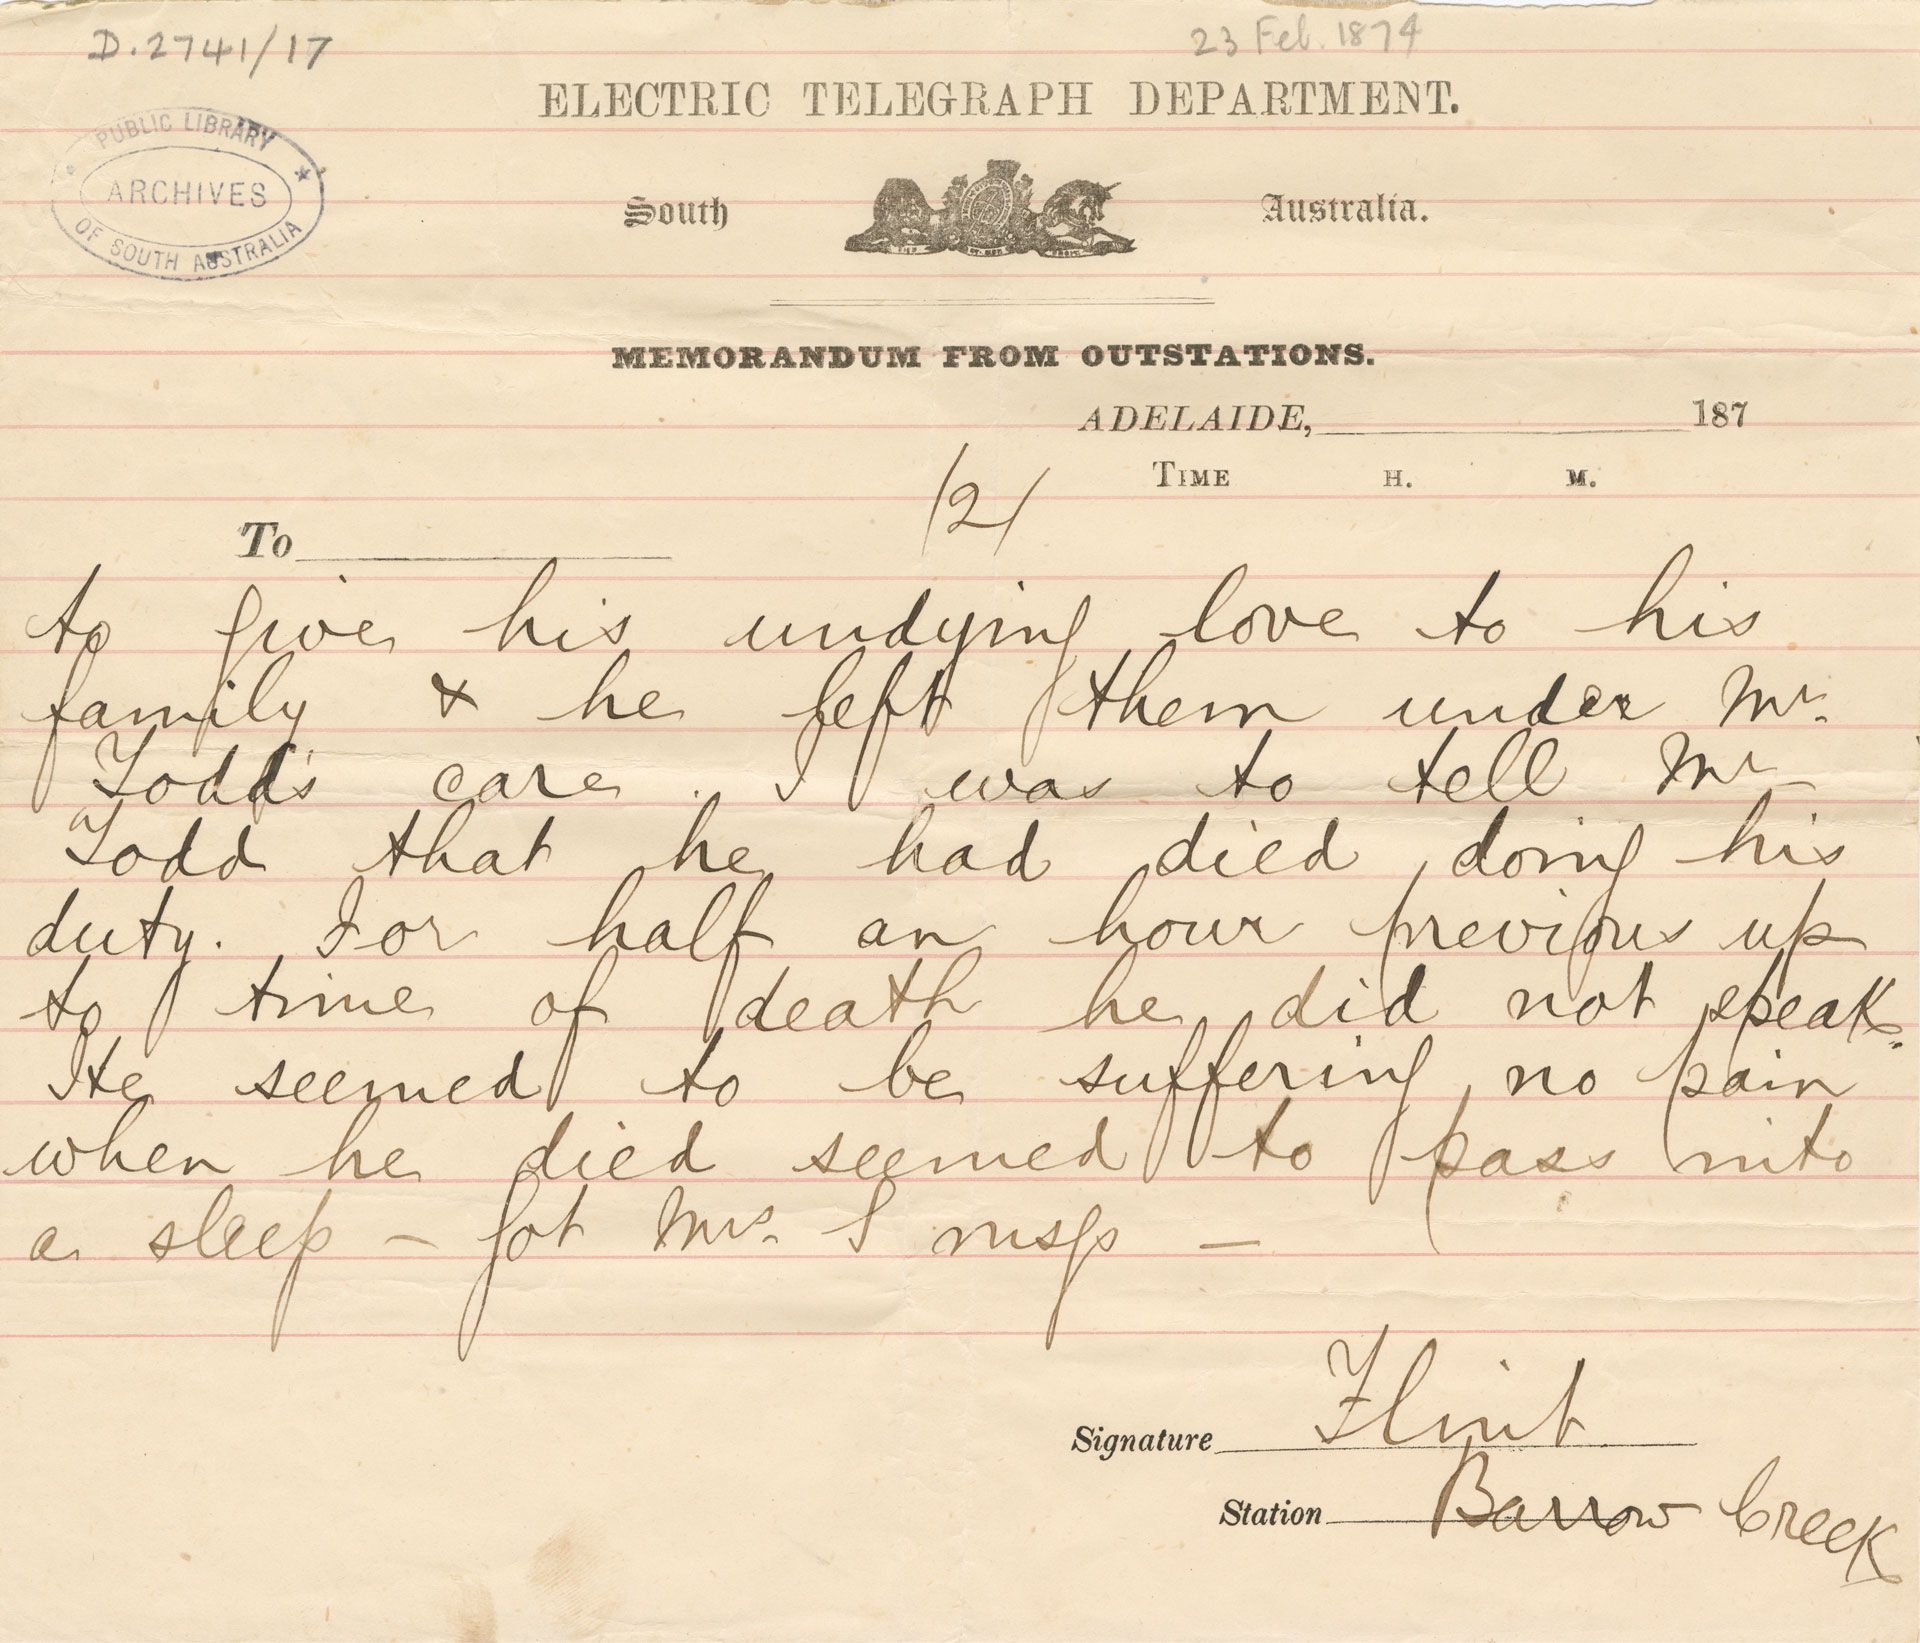 D.2741/17
23 Feb. 1874
ELECTRIC TELEGRAPH DEPARTMENT.
PUBLIC LIBRARY
ARCHIVES
OF SOUTH AUSTRALIA
South Australia.
MEMORANDUM FROM OUTSTATIONS.
ADELAIDE, 187
TIME H. M.
/2/
To
to give his undying love to his
family & he left them under Mr.
Todds care. I was to tell Mr
Todd that he had died doing his
duty. For half an hour previous up
to time of death he did not speak.
He seemed to be suffering no pain
when he died seemed to pass into
a sleep - got Mrs. S msgs -
Signature Flint
Station Barrow Creek